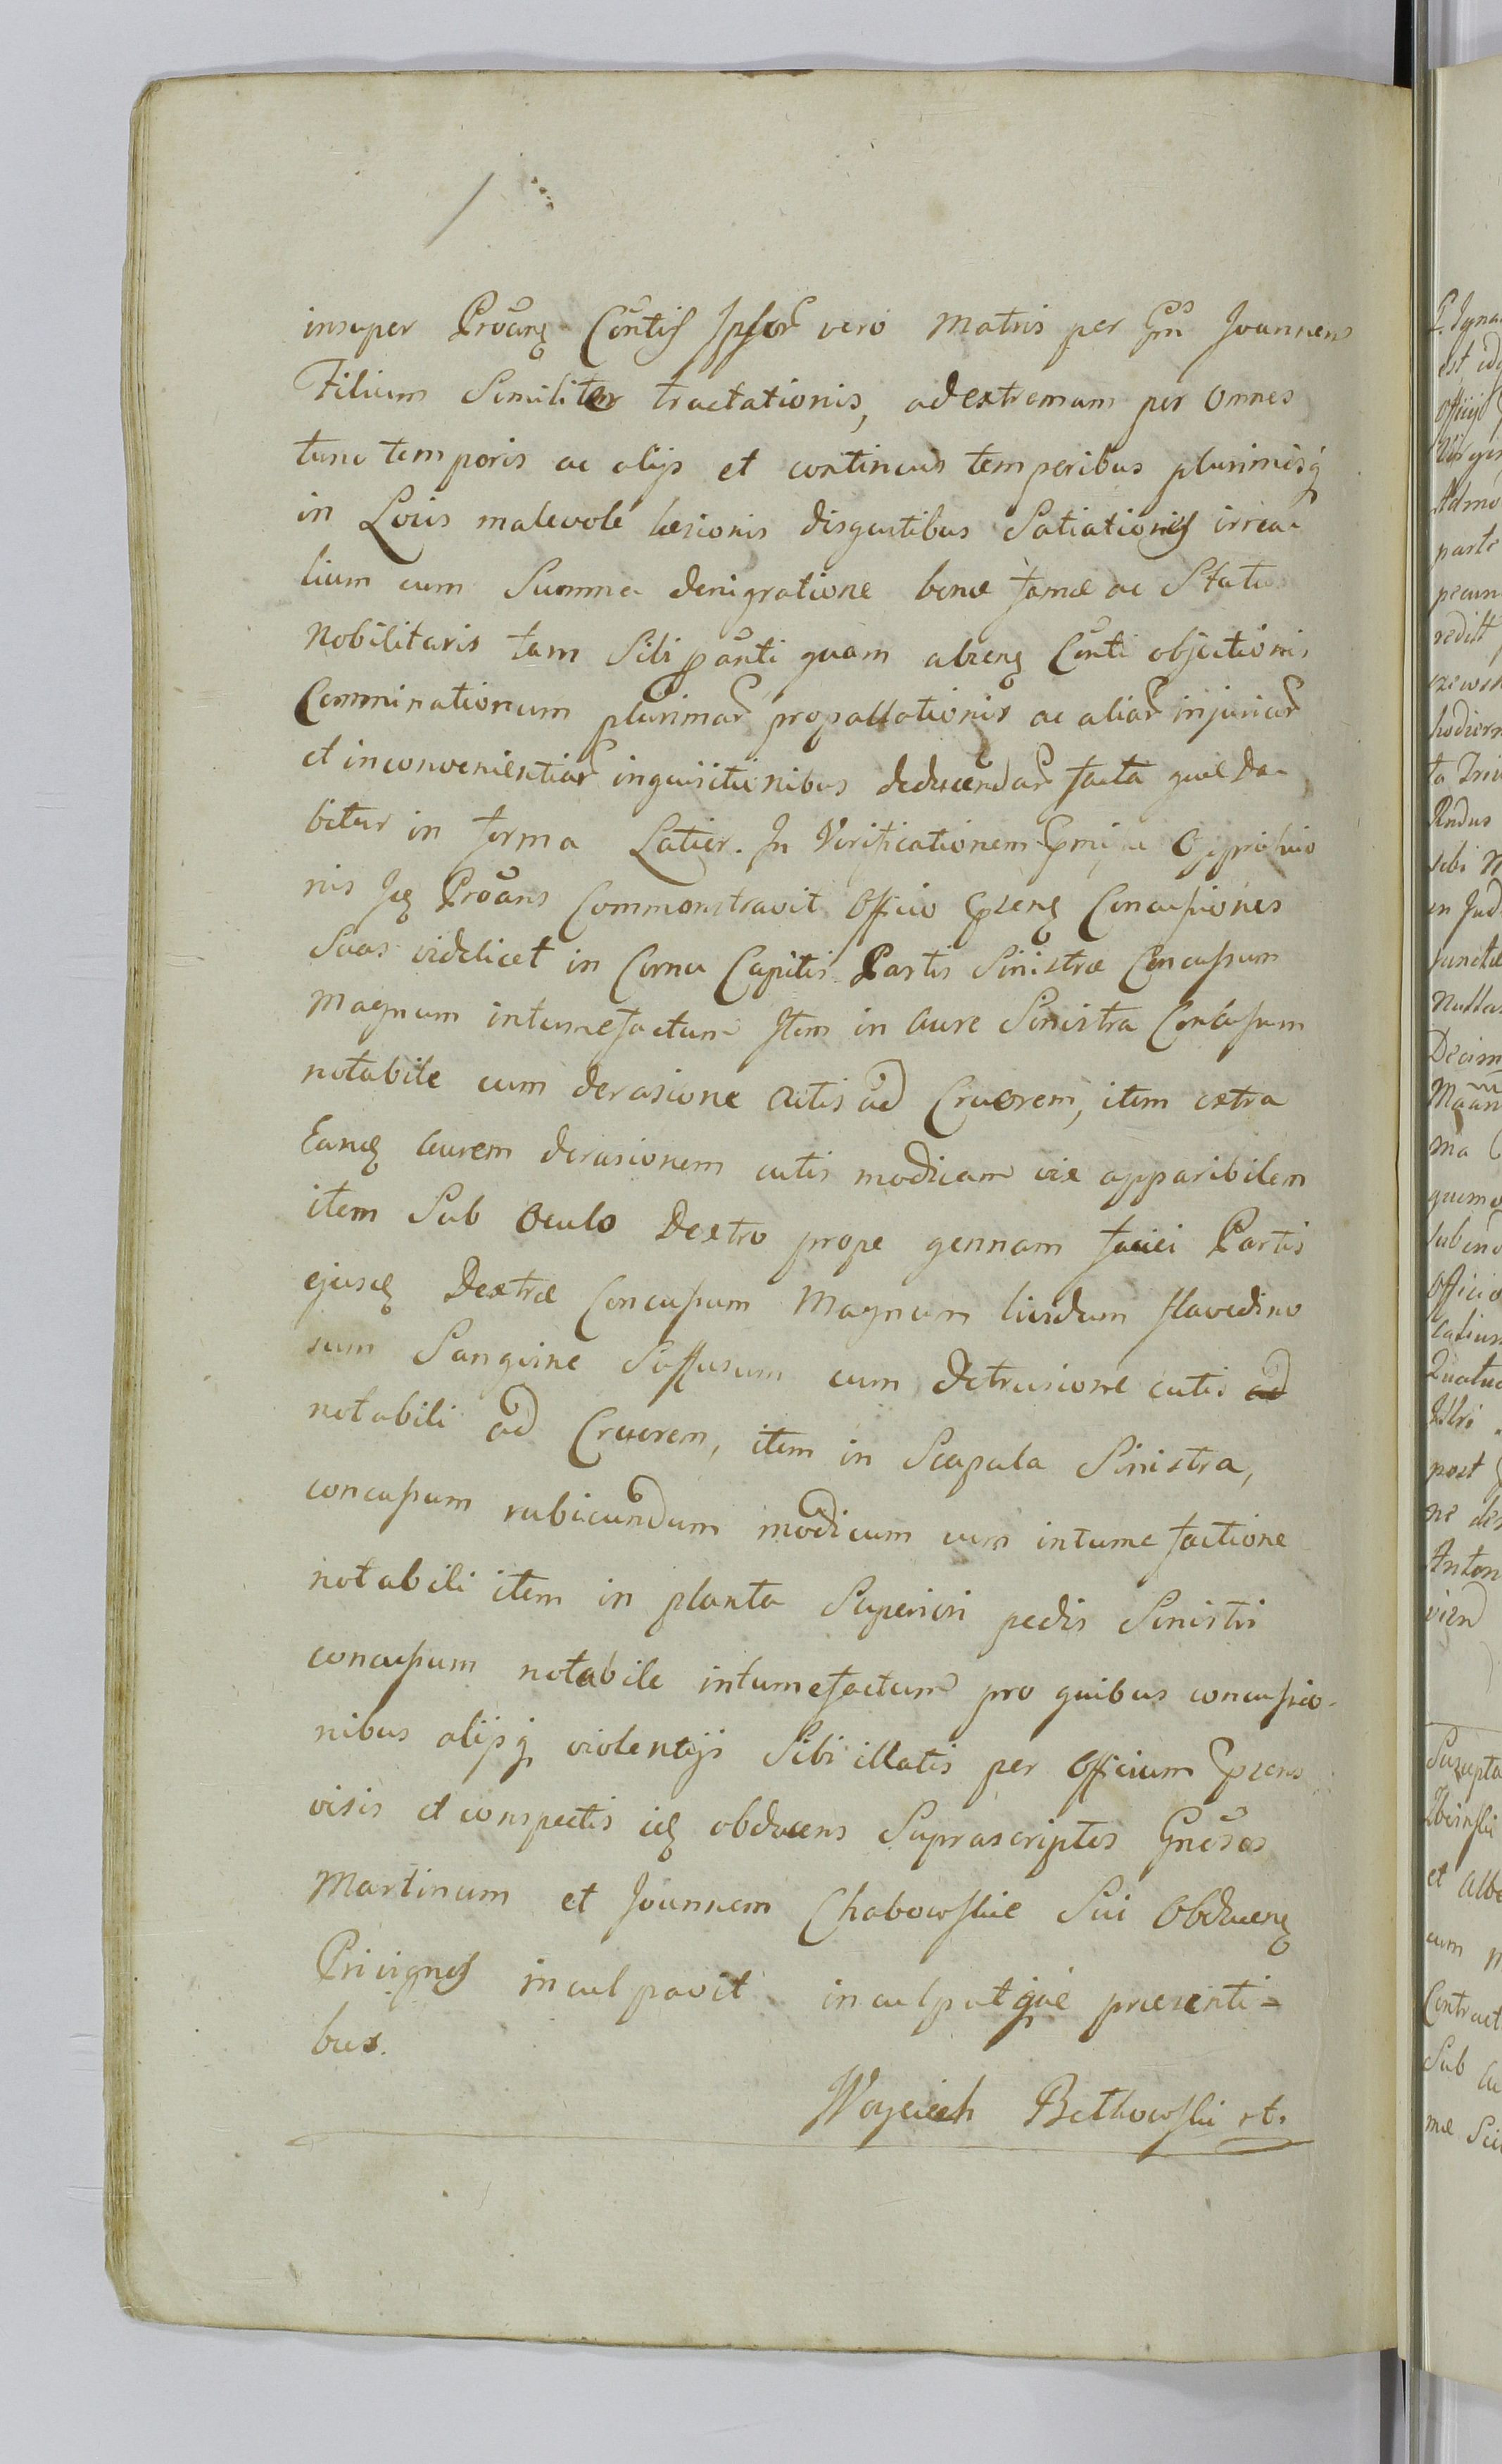 insuper Proãng Cõntis Ipsor vero Matris per Gm Joannem
Filium Similiter tractationis, ad extremam per omnes
tunc temporis ac alijs et continuis temporibus plurimisq
in Locis malevole læsionis disgustibus Satiationis irrea-
lium cum Summa denigratione bonæ famæ ac Status
Nobilitaris tam Sibi pãnti quam abseng Cõnti objectionis
Comminationum plurimar propallationis ac aliar injuriar
et inconvenientiar inquisitionibus deducendar facta quæ da-
bitur in forma Latior. In Verificationem Oppressio
nis Prõans Commonstravit Officio Concussiones
Suas videlicet in Cornu Capitis Partis Sinistræ Concussum
Magnum intumefactum Item in Aure Sinistra Concussum
notabile cum derasione Cutis ad Cruorem, item extra
Eand Aurem derasionem cutis modicam vix apparibilem
item Sub Oculo Dextro prope gennam faciei Partis
ejusd Dextræ Concussum Magnum lividum flavedino
sum Sanguine Suffusum cum detrusione cutis ad
notabili ad Cruorem, item in Scapula Sinistra,
concussum rubicundum modicum cum intumefactione
notabili item in planta Superiori pedis Sinistri
concussum notabile intumefactum pro quibus concussio-
nibus alijsq violentijs Sibi illatis per Officium
visis et conspectis id obducens Suprascriptos Gnõsos
Martinum et Joannem Chabowskie Sui Obduceng
Privignos inculpavit inculpatque præsenti-
bus.
Woyciech Betkowski